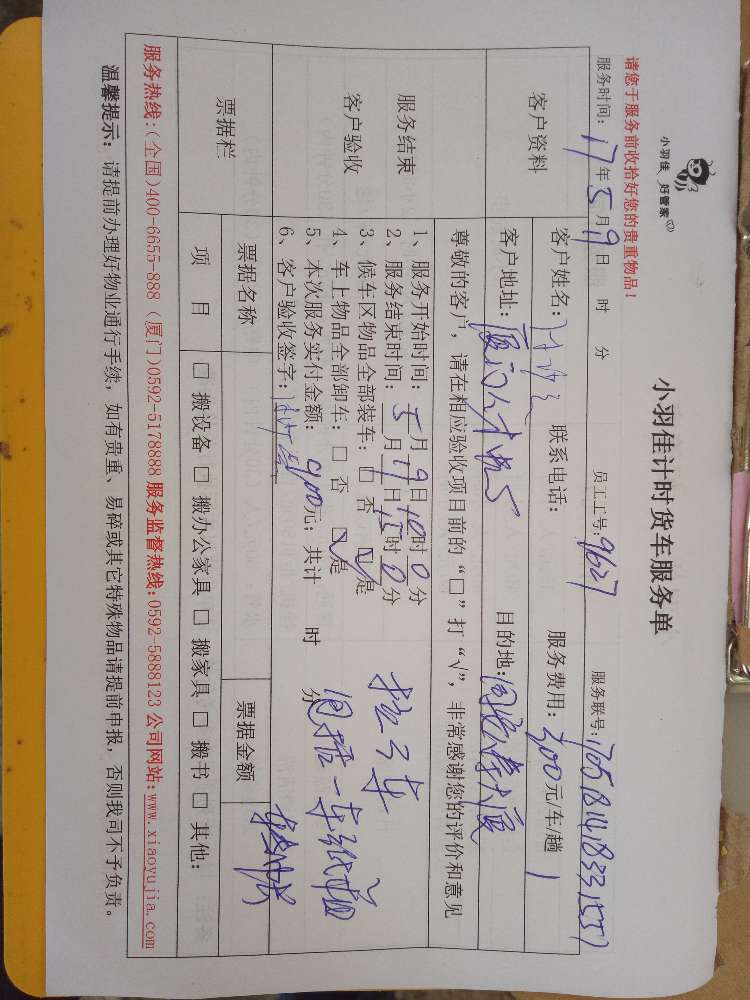 小羽佳 好管家
小羽佳计时货车服务单
请您于服务前收拾好您的贵重物品!
员工工号:9627
服务联号:
服务时间: 17年5月19日 时 分
客户资料
客户姓名: 联系电话: 服务费用: 300元/车/趟
客户地址: 厦门 目的地:
服务结束
客户验收
尊敬的客户,请在相应验收项目前的“□”打“√”,非常感谢您的评价和意见
1、服务开始时间: 5月19日10时0分
2、服务结束时间: 5月19日15时0分
3、候车区物品全部装车: □ 否 ☑是
4、车上物品全部卸车: □ 否 ☑是
5、本次服务实付金额: 900元; 共计 时 分
6、客户验收签字:
票据栏
票据名称 票据金额
项 目 □ 搬设备 □ 搬办公家具 □ 搬家具 □ 搬书 □ 其他:
服务热线:(全国)400-6655-888 (厦门)0592-5178888 服务监督热线:0592-5888123 公司网站:www.xiaoyujia.com
温馨提示: 请提前办理好物业通行手续, 如有贵重、易碎或其它特殊物品请提前申报, 否则我司不予负责。